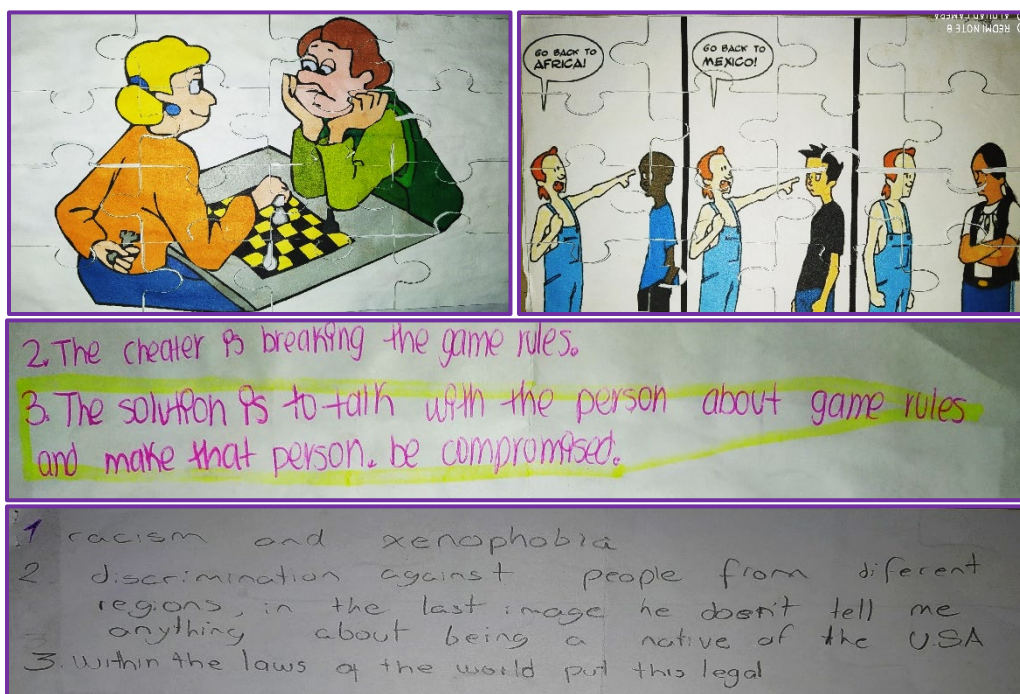 AI QUAD CAMERA
REDMI NOTE 8
GO BACK TO
AFRICA!
GO BACK TO
MEXICO!
2. The cheater is breaking the game rules.
3. The solution is to talk with the person about game rules
and make that person. be compromised.
1 racism and xenophobia
2 discrimination against people from diferent
regions, in the last image he doesn't tell me
anything about being a native of the U.S.A
3. within the laws of the world put this legal